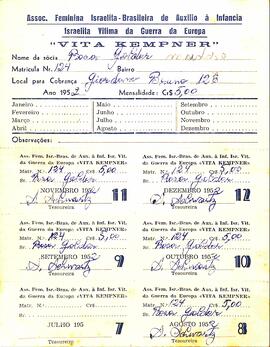 Assoc. Feminina Israelita-Brasileira de Auxilio à Infancia
Israelita Vítima da Guerra da Europa
"VITA KEMPNER"
Nome da sócia Rosa Golder
Matricula No. 124 Bairro
Local para Cobrança Giordano Bruno 128
Ano 1952 Mensalidade: Cr$ 5,00
Janeiro Maio Setembro
Fevereiro Junho Outubro
Março Julho Novembro
Abril Agosto Dezembro
Ass. Fem. Isr.-Bras. de Aux. à Inf. Isr. Vit. Ass. Fem. Isr.-Bras. de Aux. à Inf. Isr. Vit.
da Guerra da Europa «VITA KEMPNER» da Guerra da Europa «VITA KEMPNER»
Matr. No. 124 Cr$ 5,00 Matr. No. 124 Cr$ 5,00
Sra. Rosa Golder Sra. Rosa Golder
NOVEMBRO 1952 11 DEZEMBRO 1952 12
Tesoureira Tesoureira
Ass. Fem. Isr.-Bras. de Aux. à Inf. Isr. Vit. Ass. Fem. Isr.-Bras. de Aux. à Inf. Isr. Vit.
da Guerra da Europa «VITA KEMPNER» da Guerra da Europa «VITA KEMPNER»
Matr. No. 124 Cr$ 5,00 Matr. No. 124 Cr$ 5,00
Sra. Rosa Golder Sra. Rosa Golder
SETEMBRO 1952 9 OUTUBRO 1952 10
Tesoureira Tesoureira
Ass. Fem. Isr.-Bras. de Aux. à Inf. Isr. Vit. Ass. Fem. Isr.-Bras. de Aux. à Inf. Isr. Vit.
da Guerra da Europa «VITA KEMPNER» da Guerra da Europa «VITA KEMPNER»
Matr. No. Cr$ Matr. No. 124 Cr$ 5,00
Sra. Sra. Rosa Golder
JULHO 195 7 AGOSTO 1952 8
Tesoureira Tesoureira